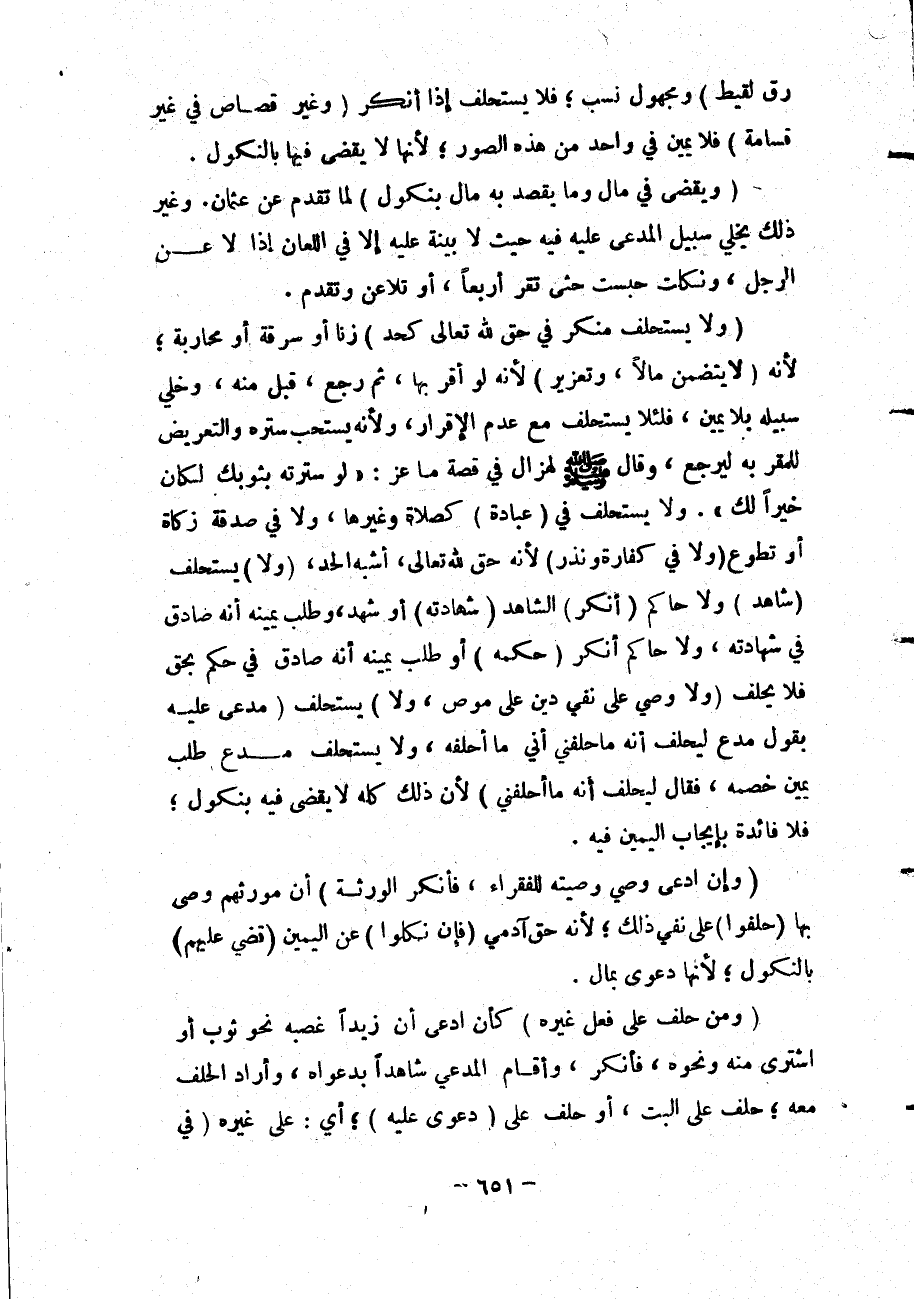 رق لقيط ) ومجهول نسب ؛ فلا يستحلف إذا أنكر ( وغير قصاص في غير
قسامة ) فلا يمين في واحد من هذه الصور ؛ لأنها لا يقضى فيها بالنكول .
( ويقضى في مال وما يقصد به مال بنكول ) لما تقدم عن عثمان. وغير
ذلك يخلي سبيل المدعى عليه فيه حيث لا بينة عليه إلا في اللعان إذا لا عن
الرجل ، ونكلت حبست حتى تقر أربعاً ، أو تلاعن وتقدم .
( ولا يستحلف منكر في حق لله تعالى كحد ) زنا أو سرقة أو محاربة ؛
لأنه ( لايتضمن مالاً ، وتعزير ) لأنه لو أقر بها ، ثم رجع ، قبل منه ، وخلي
سبيله بلا يمين ، فلئلا يستحلف مع عدم الإقرار، ولأنه يستحب ستره والتعريض
للمقر به ليرجع ، وقال ﷺ لهزال في قصة ماعز : « لو سترته بثوبك لكان
خيراً لك » . ولا يستحلف في ( عبادة ) كصلاة وغيرها ، ولا في صدقة زكاة
أو تطوع (ولا في كفارة ونذر) لأنه حق لله تعالى، أشبه الحد، (ولا) يستحلف
(شاهد ) ولا حاكم ( أنكر ) الشاهد ( شهادته) أو شهد، وطلب يمينه أنه صادق
في شهادته ، ولا حاكم أنكر ( حكمه ) أو طلب يمينه أنه صادق في حكم بحق
فلا يحلف (ولا وصي على نفي دين على موص ، ولا ) يستحلف ( مدعى عليه
بقول مدع ليحلف أنه ماحلفني أني ما أحلفه ، ولا يستحلف مدع طلب
يمين خصمه ، فقال ليحلف أنه ما أحلفني ) لأن ذلك كله لا يقضى فيه بنكول ؛
فلا فائدة بإيجاب اليمين فيه .
( وإن ادعى وصي وصيته للفقراء ، فأنكر الورثة ) أن مورثهم وصى
بها (حلفوا) على نفي ذلك ؛ لأنه حق آدمي (فإن نكلوا ) عن اليمين (قضي عليهم)
بالنكول ؛ لأنها دعوى بمال .
( ومن حلف على فعل غيره ) كأن ادعى أن زيداً غصبه نحو ثوب أو
اشترى منه ونحوه ، فأنكر ، وأقام المدعي شاهداً بدعواه ، وأراد الحلف
معه ؛ حلف على البت ، أو حلف على ( دعوى عليه ) ؛ أي : على غيره ( في
- ٦٥١ -